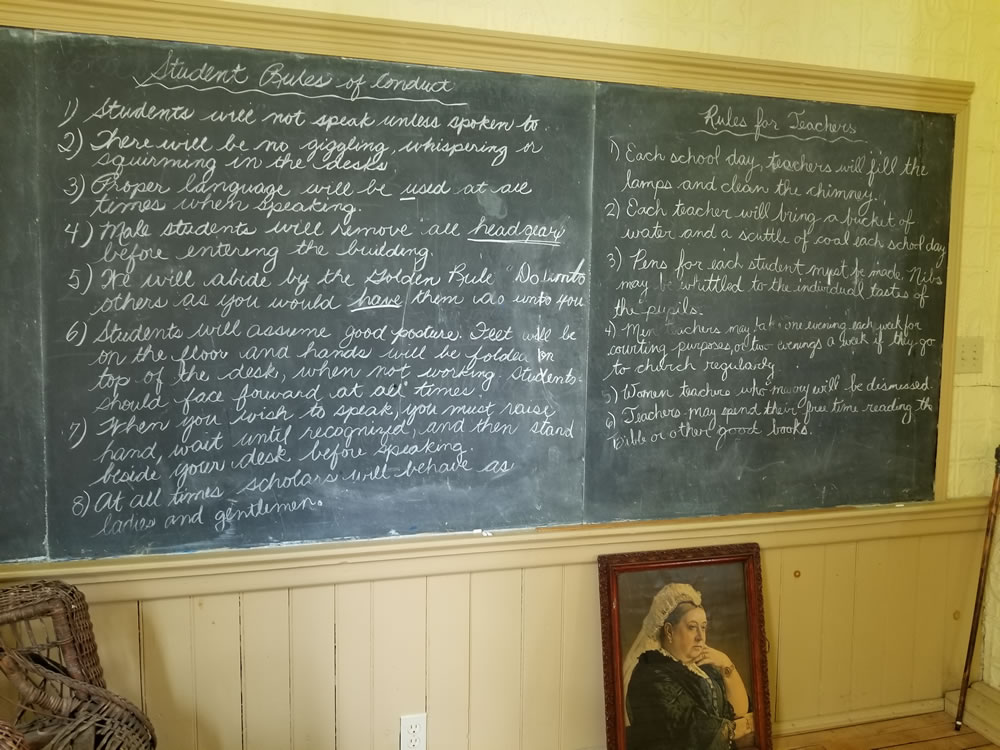 Student Rules of Conduct
1) Students will not speak unless spoken to.
2) There will be no giggling, whispering or
squirming in the desks.
3) Proper language will be used at all
times when speaking.
4) Male students will remove all headgear
before entering the building.
5) We will abide by the Golden Rule "Do unto
others as you would have them do unto you
6) Students will assume good posture. Feet will be
on the floor and hands will be folded on
top of the desk, when not working students
should face forward at all times.
7) When you wish to speak, you must raise
hand, wait until recognized, and then stand
beside your desk before speaking.
8) At all times scholars will behave as
ladies and gentlemen.
Rules for Teachers
1) Each school day, teachers will fill the
lamps and clean the chimney.
2) Each teacher will bring a bucket of
water and a scuttle of coal each school day
3) Pens for each student must be made. Nibs
may be whittled to the individual tastes of
the pupils.
4) Men teachers may take one evening each week for
courting purposes, or two evenings a week if they go
to church regularly
5) Women teachers who marry will be dismissed.
6) Teachers may spend their free time reading the
bible or other good books.